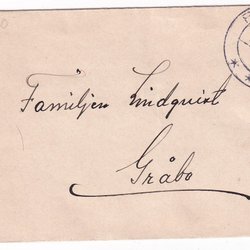 Familjen Lindquist
Gråbo